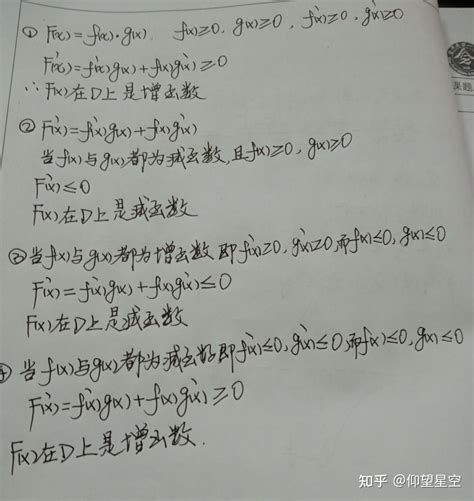 ① F(x)=f(x)·g(x). f(x)≥0, g(x)≥0, f'(x)≥0, g'(x)≥0
F'(x)=f'(x)g(x)+f(x)g'(x)≥0
∴F(x)在D上是增函数
② F'(x)=f'(x)g(x)+f(x)g'(x)
当f(x)与g(x)都为减函数,且f(x)≥0, g(x)≥0
F'(x)≤0
F(x)在D上是减函数
③当f(x)与g(x)都为增函数即f'(x)≥0, g'(x)≥0,而f(x)≤0, g(x)≤0
F'(x)=f'(x)g(x)+f(x)g'(x)≤0
F(x)在D上是减函数
④ 当f(x)与g(x)都为减函数即f'(x)≤0, g'(x)≤0,而f(x)≤0, g(x)≤0
F'(x)=f'(x)g(x)+f(x)g'(x)≥0
F(x)在D上是增函数.
课题
知乎 @仰望星空